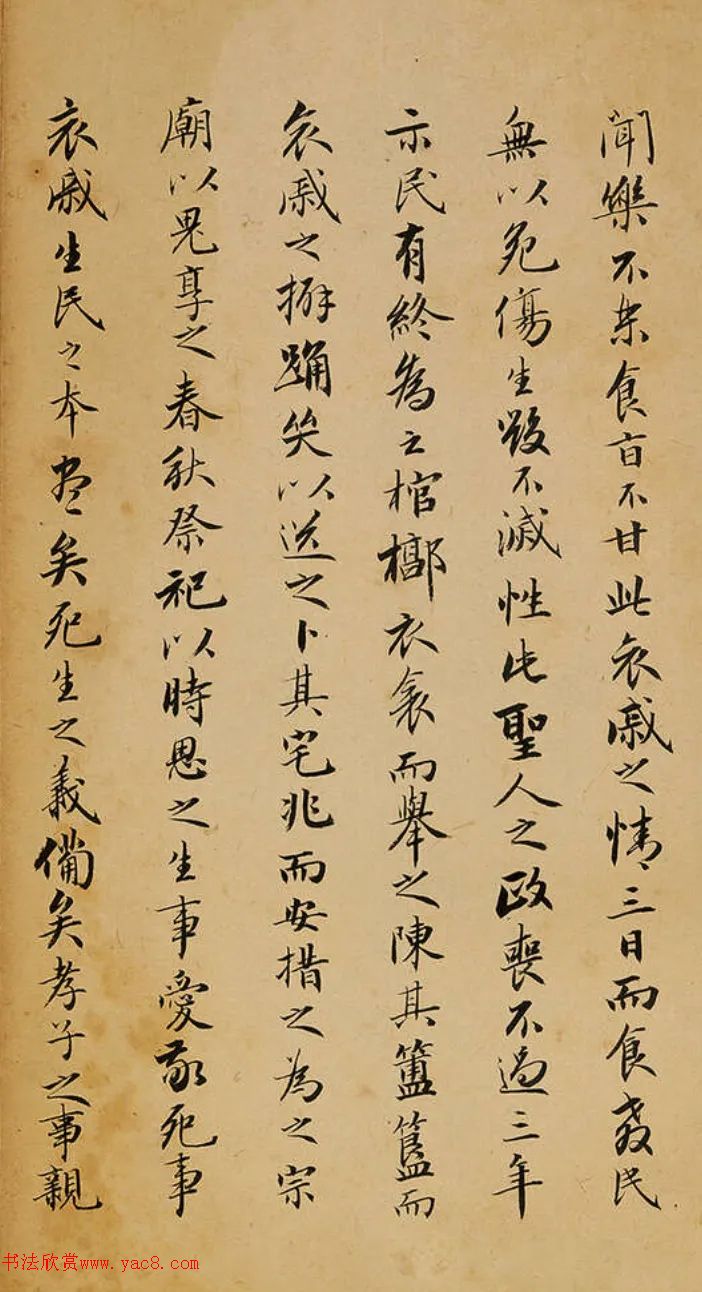 聞樂不樂食旨不甘此哀戚之情三日而食教民
無以死傷生毀不滅性此聖人之政喪不過三年
示民有終為之棺槨衣衾而舉之陳其簠簋而
哀戚之擗踊哭以送之卜其宅兆而安措之為之宗
廟以鬼享之春秋祭祀以時思之生事愛敬死事
哀戚生民之本盡矣死生之義備矣孝子之事親
书法欣赏www.yac8.com